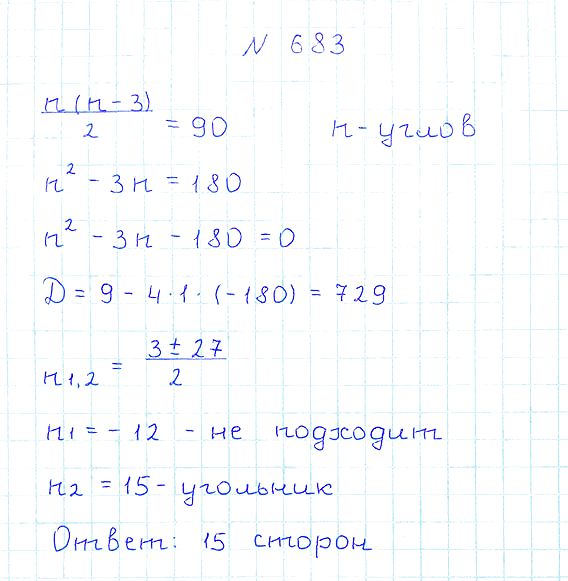 N 683
n(n-3)/2 = 90 n - углов
n² - 3n = 180
n² - 3n - 180 = 0
D = 9 - 4·1·(-180) = 729
n1,2 = 3 ± 27/2
n1 = - 12 - не подходит
n2 = 15 - угольник
Ответ: 15 сторон